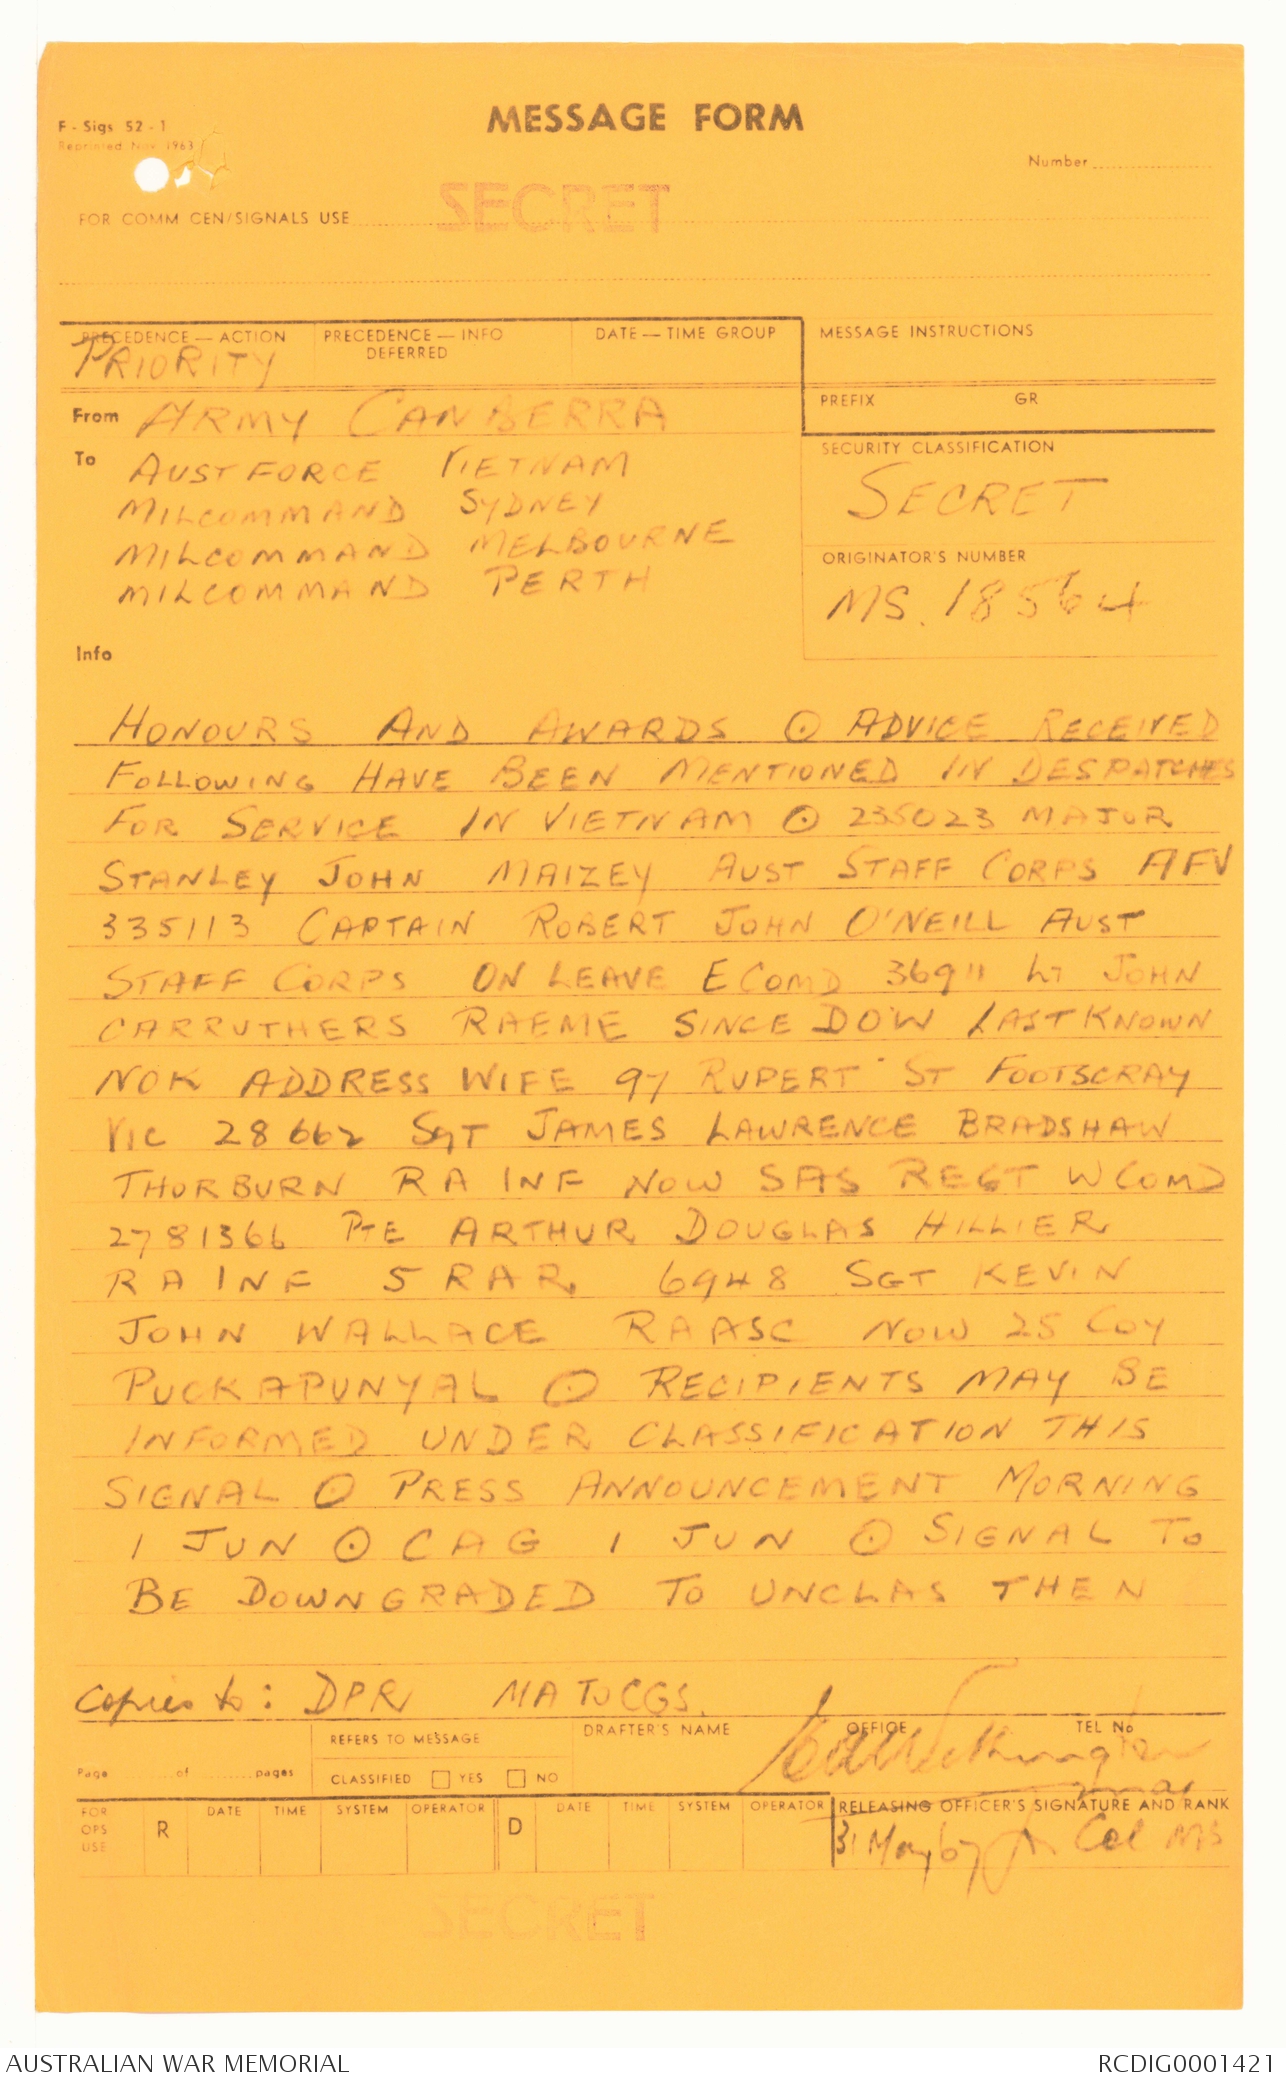 MESSAGE FORM
F - Sigs 52 - 1
Reprinted Nov 1963
Number
SECRET
FOR COMM CEN/SIGNALS USE
PRECEDENCE — ACTION
PRIORITY
PRECEDENCE — INFO
DEFERRED
DATE — TIME GROUP
MESSAGE INSTRUCTIONS
PREFIX GR
From ARMY CANBERRA
To AUSTFORCE VIETNAM
MILCOMMAND SYDNEY
MILCOMMAND MELBOURNE
MILCOMMAND PERTH
SECURITY CLASSIFICATION
SECRET
ORIGINATOR'S NUMBER
MS. 18564
Info
HONOURS AND AWARDS ⊙ ADVICE RECEIVED
FOLLOWING HAVE BEEN MENTIONED IN DESPATCHES
FOR SERVICE IN VIETNAM ⊙ 235023 MAJOR
STANLEY JOHN MAIZEY AUST STAFF CORPS AFV
335113 CAPTAIN ROBERT JOHN O'NEILL AUST
STAFF CORPS ON LEAVE E COMD 36911 LT JOHN
CARRUTHERS RAEME SINCE DOW LAST KNOWN
NOK ADDRESS WIFE 97 RUPERT ST FOOTSCRAY
VIC 28662 SGT JAMES LAWRENCE BRADSHAW
THORBURN RA INF NOW SAS REGT W COMD
2781366 PTE ARTHUR DOUGLAS HILLIER
RA INF 5 RAR, 6948 SGT KEVIN
JOHN WALLACE RAASC NOW 25 COY
PUCKAPUNYAL ⊙ RECIPIENTS MAY BE
INFORMED UNDER CLASSIFICATION THIS
SIGNAL ⊙ PRESS ANNOUNCEMENT MORNING
1 JUN ⊙ CAG 1 JUN ⊙ SIGNAL TO
BE DOWNGRADED TO UNCLAS THEN
Copies to: DPR MA TO CGS.
Page of pages
REFERS TO MESSAGE
CLASSIFIED YES NO
DRAFTER'S NAME
OFFICE
TEL No
FOR OPS USE
R
DATE TIME SYSTEM OPERATOR
D
DATE TIME SYSTEM OPERATOR
RELEASING OFFICER'S SIGNATURE AND RANK
31 May 67 Col MS
SECRET
AUSTRALIAN WAR MEMORIAL
RCDIG0001421